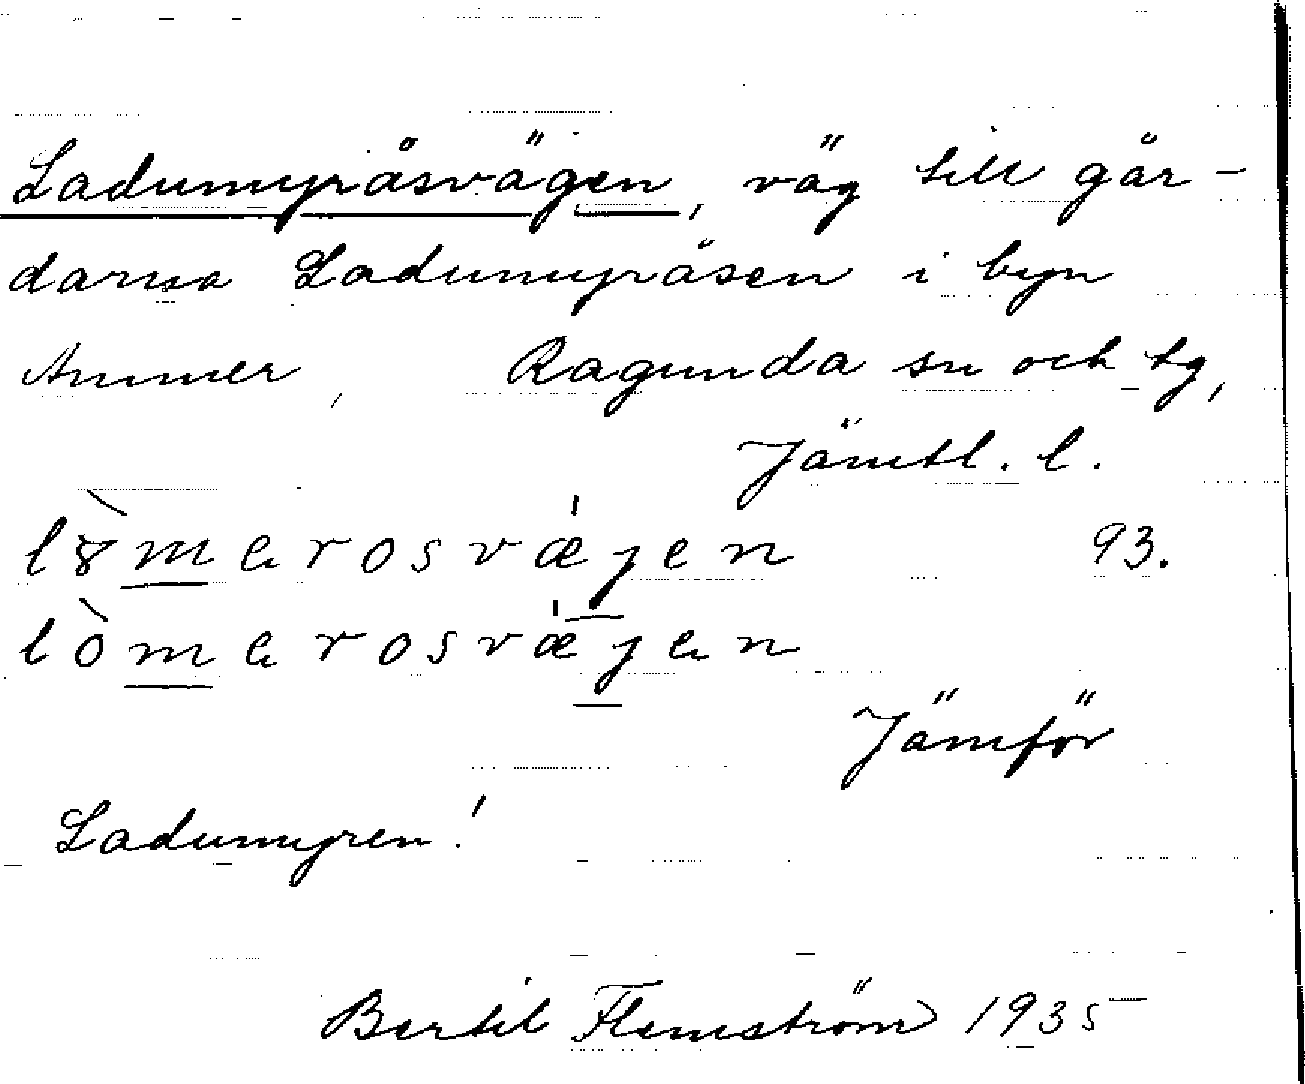 Ladumyråsvägen, väg till går-
darna Ladumyråsen i byn
Ammer, Ragunda sn och tg,
Jämtl. l.
l8̀merosvæ̍jen 93.
lòmerosvæ̍jen
Jämför
Ladumyren!
Bertil Flemström 1935